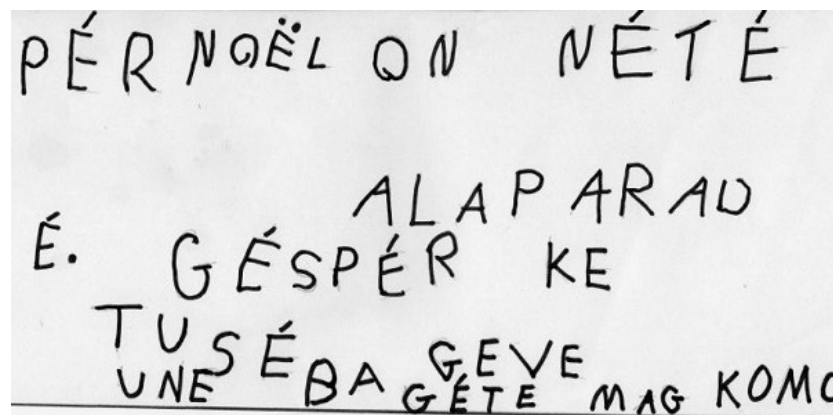 PÉR NOËL ON NÉTÉ
ALAPARAD
É. GÉSPÉR KE
TU SÉBA GEVE
UNE BAGÉTE MAG KOMO